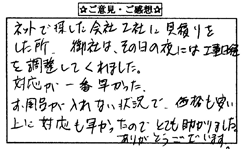 ☆ご意見・ご感想☆
ネットで探した会社2社に見積りを
した所、御社は、その日の夜には工事日程
を調整してくれました。
対応が一番早かった。
お風呂が入れない状況で、価格も安い
上に対応も早かったのでとても助かりました。
ありがとうございます。